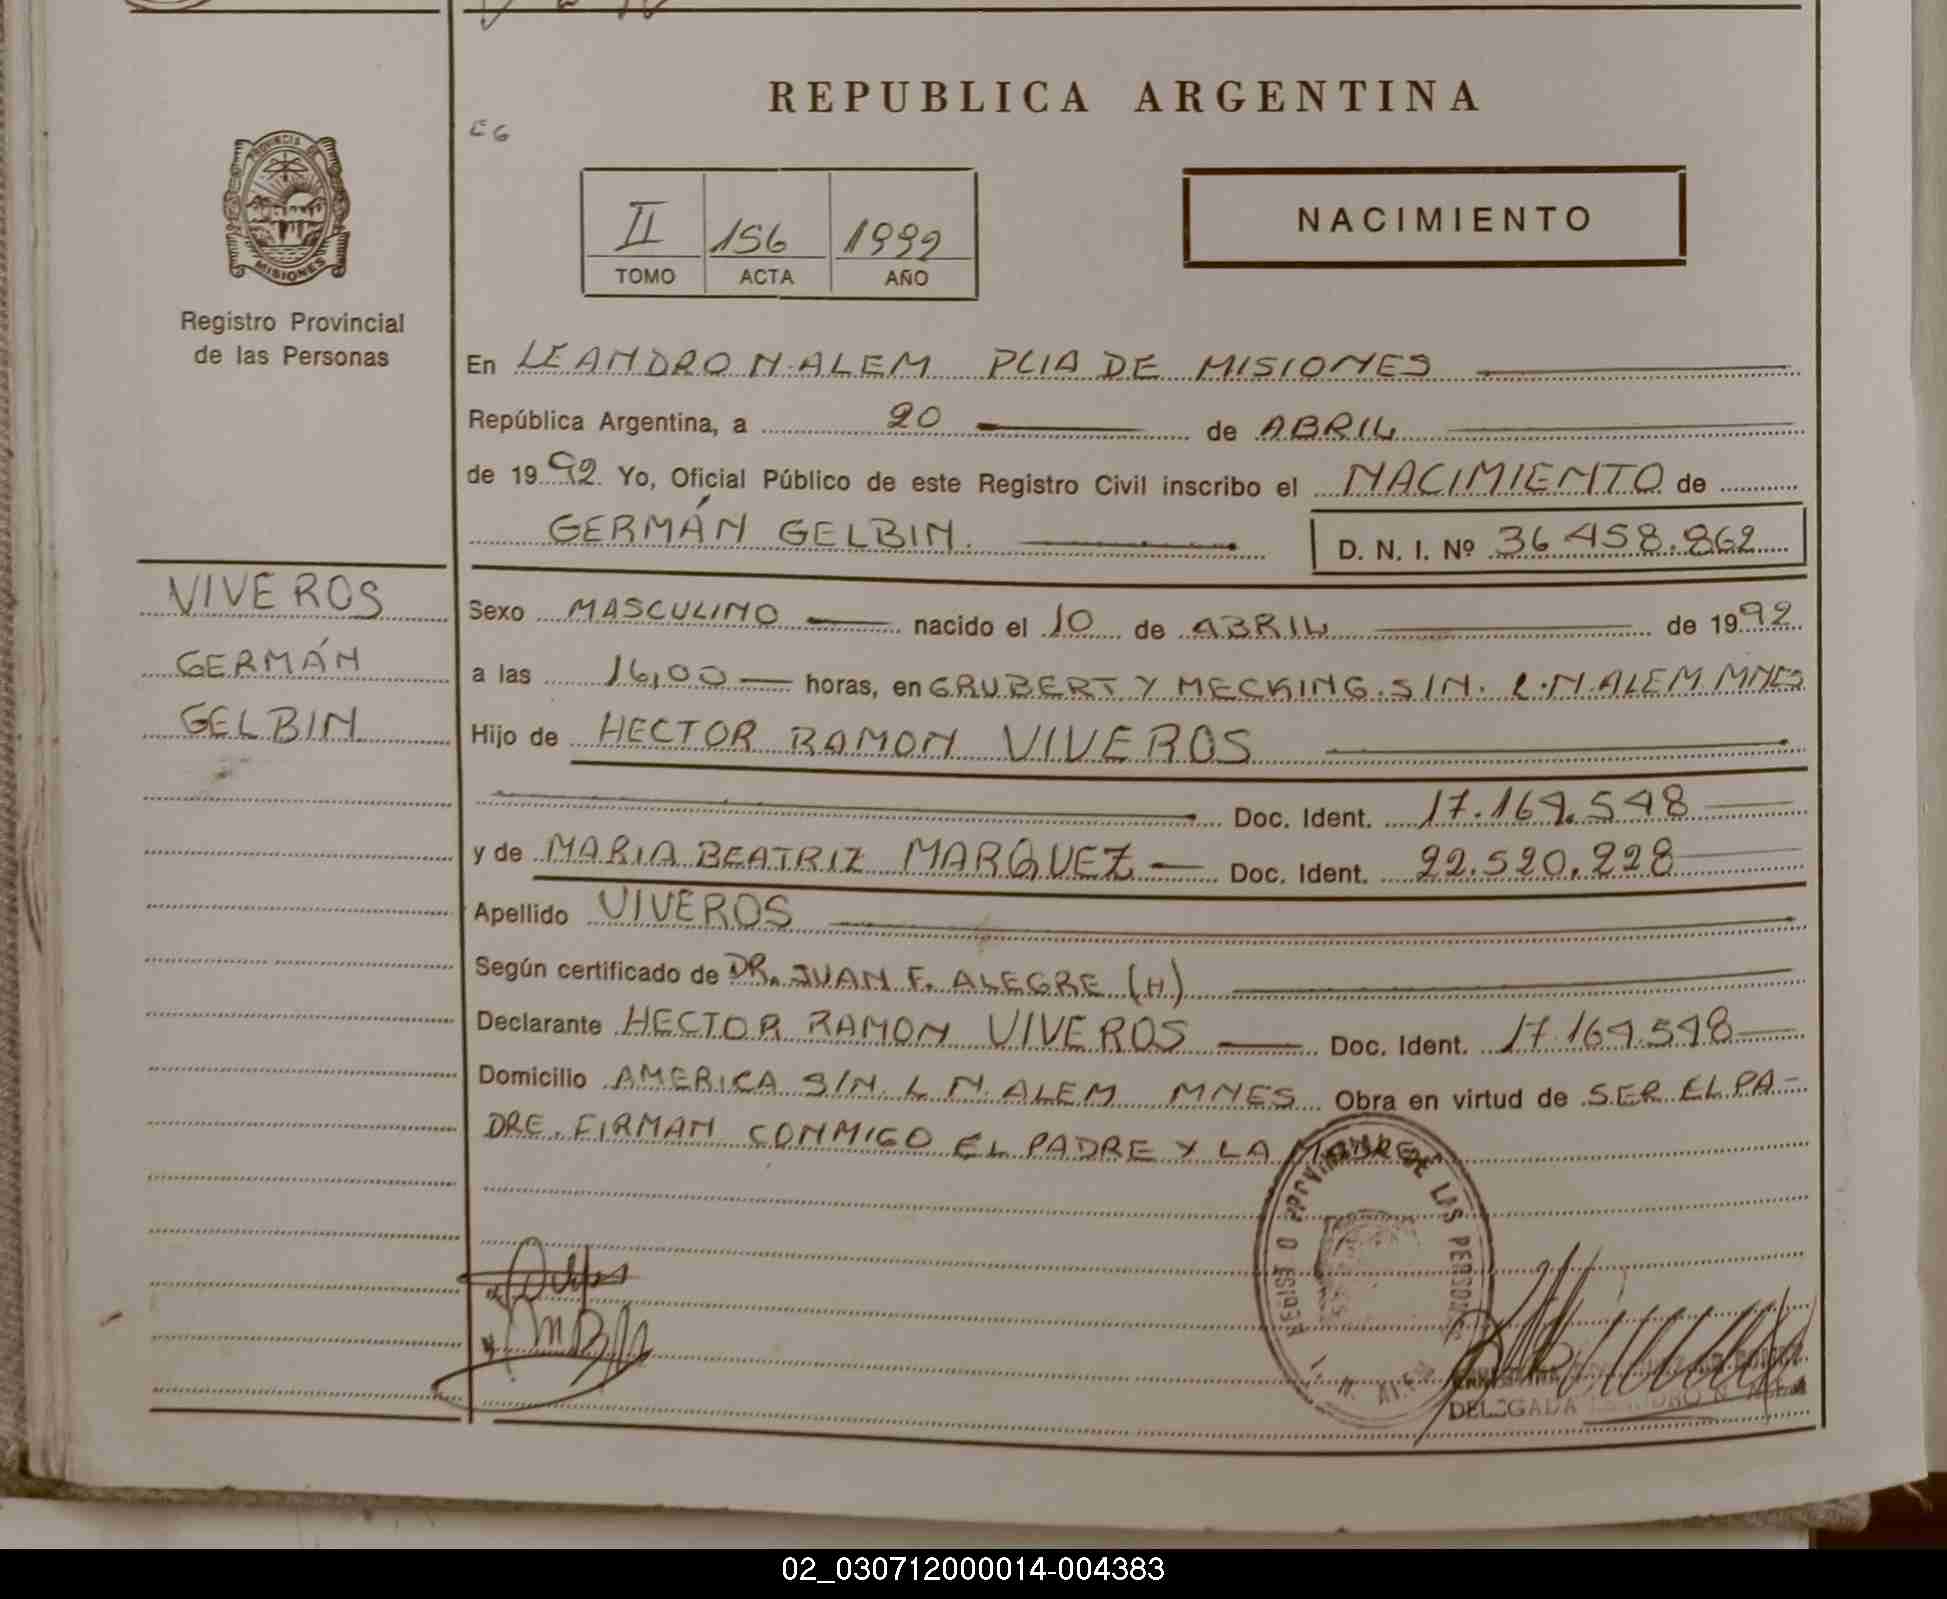 REPUBLICA ARGENTINA
EG
PROVINCIA DE
MISIONES
II 156 1992
TOMO ACTA AÑO
NACIMIENTO
Registro Provincial
de las Personas
En LEANDRO N. ALEM PCIA DE MISIONES
República Argentina, a 20 de ABRIL
de 1992. Yo, Oficial Público de este Registro Civil inscribo el NACIMIENTO de
GERMÁN GELBIN. D. N. I. Nº 36 458.862
VIVEROS
GERMÁN
GELBIN
Sexo MASCULINO nacido el 10 de ABRIL de 1992
a las 16,00 horas, en GRUBERT Y MECKING. S/N. L.N. ALEM MNES
Hijo de HECTOR RAMON VIVEROS
Doc. Ident. 17.169.548
y de MARIA BEATRIZ MARQUEZ Doc. Ident. 22.520.228
Apellido VIVEROS
Según certificado de DR. JUAN F. ALEGRE (H)
Declarante HECTOR RAMON VIVEROS Doc. Ident. 17.169.548
Domicilio AMERICA S/N. L N. ALEM MNES Obra en virtud de SER EL PA-
DRE. FIRMAN CONMIGO EL PADRE Y LA MADRE
DE LAS PERSONAS
L. N. ALEM
DELEGADA LEANDRO N. ALEM
02_030712000014-004383